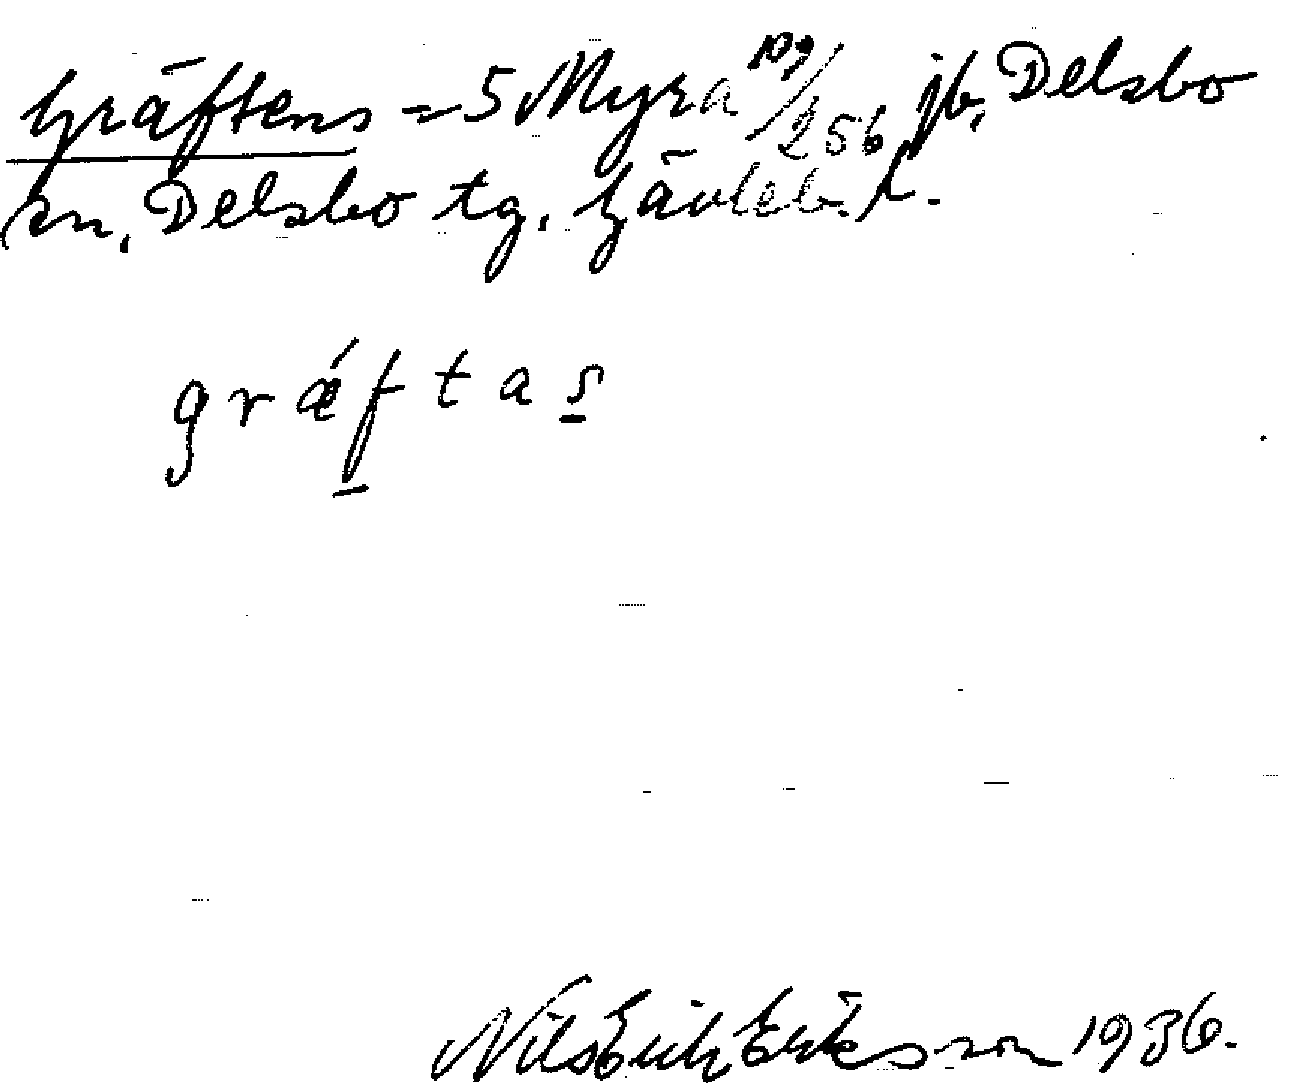 Gräftens = 5 Myra 109/256 jb, Delsbo
sn, Delsbo tg, Gävleb. l.
grǽftas
Nils Erik Eriksson 1936.